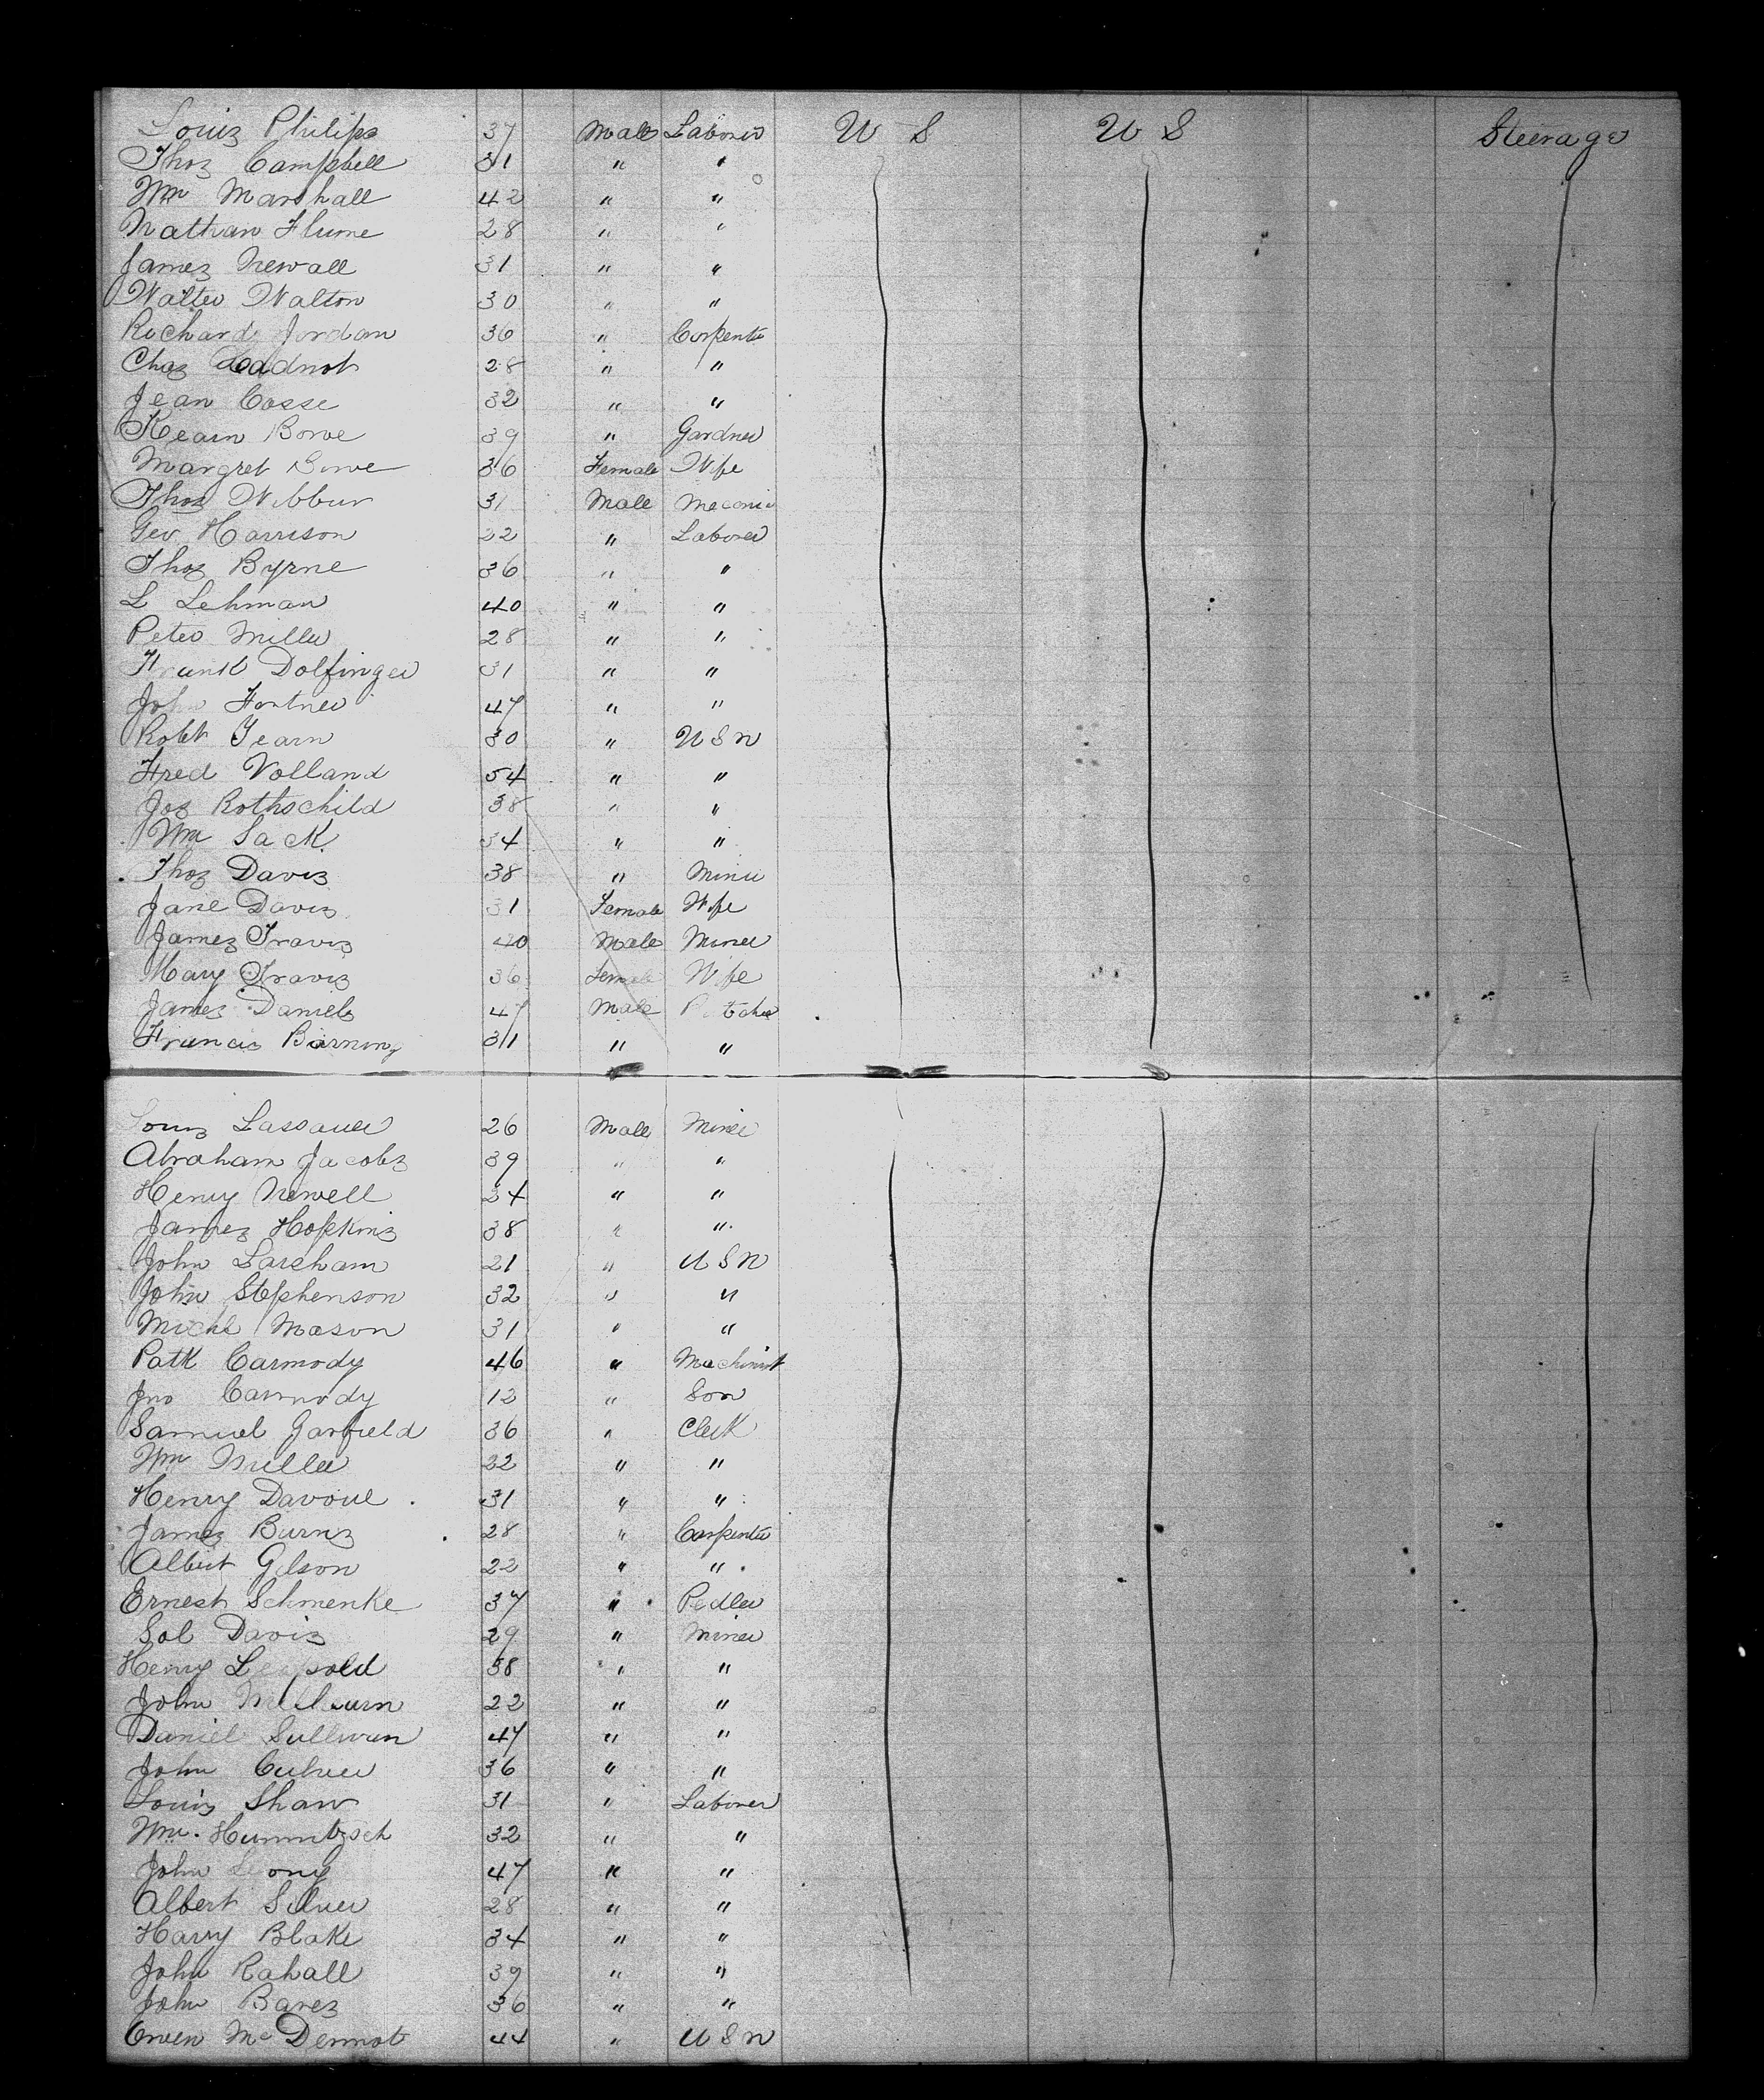 Louis Philips 37 Male Laborer U S U S Steerage
Thos Campbell 31 " "
Wm Marshall 42 " "
Nathan Flume 28 " "
James Newall 31 " "
Walter Walton 30 " "
Richard Jordan 36 " Carpenter
Chas Hadnot 28 " "
Jean Cosse 32 " "
Kearn Bowe 39 " Gardner
Margret Bowe 36 Female Wife
Thos Wibbur 31 Male Meconic
Geo Harrison 22 " Laborer
Thos Byrne 36 " "
L Lehman 40 " "
Peter Miller 28 " "
Frank Dolfinger 31 " "
John Fortner 47 " "
Robt Fearn 30 " U S N
Fred Volland 54 " "
Jos Rothschild 38 " "
Wm Sack 34 " "
Thos Davis 38 " Miner
Jane Davis 31 Female Wife
James Travis 40 Male Miner
Mary Travis 36 Female Wife
James Daniels 47 Male
Francis Barning 31 " "
Louis Lassauer 26 Male Miner
Abraham Jacobs 39 " "
Henry Newell 24 " "
James Hopkins 38 " "
John Larsham 21 " U S N
John Stephenson 32 " "
Michl Mason 31 " "
Patk Carmody 46 " Machinist
Jno Carmody 12 " Son
Samuel Garfield 36 " Clerk
Wm Miller 22 " "
Henry Davoue 31 " "
James Burns 28 " Carpenter
Albert Gilson 22 " "
Ernest Schmenke 37 " Pedler
Sol Davis 29 " Miner
Henry Leopold 38 " "
John Milburn 22 " "
Daniel Sullivan 47 " "
John Culver 36 " "
Louis Shaw 31 " Laborer
Wm. Hummitzsch 32 " "
John Leong 47 " "
Albert Silver 28 " "
Harry Blake 34 " "
John Rahall 39 " "
John Bares 36 " "
Owen McDermot 44 " U S N